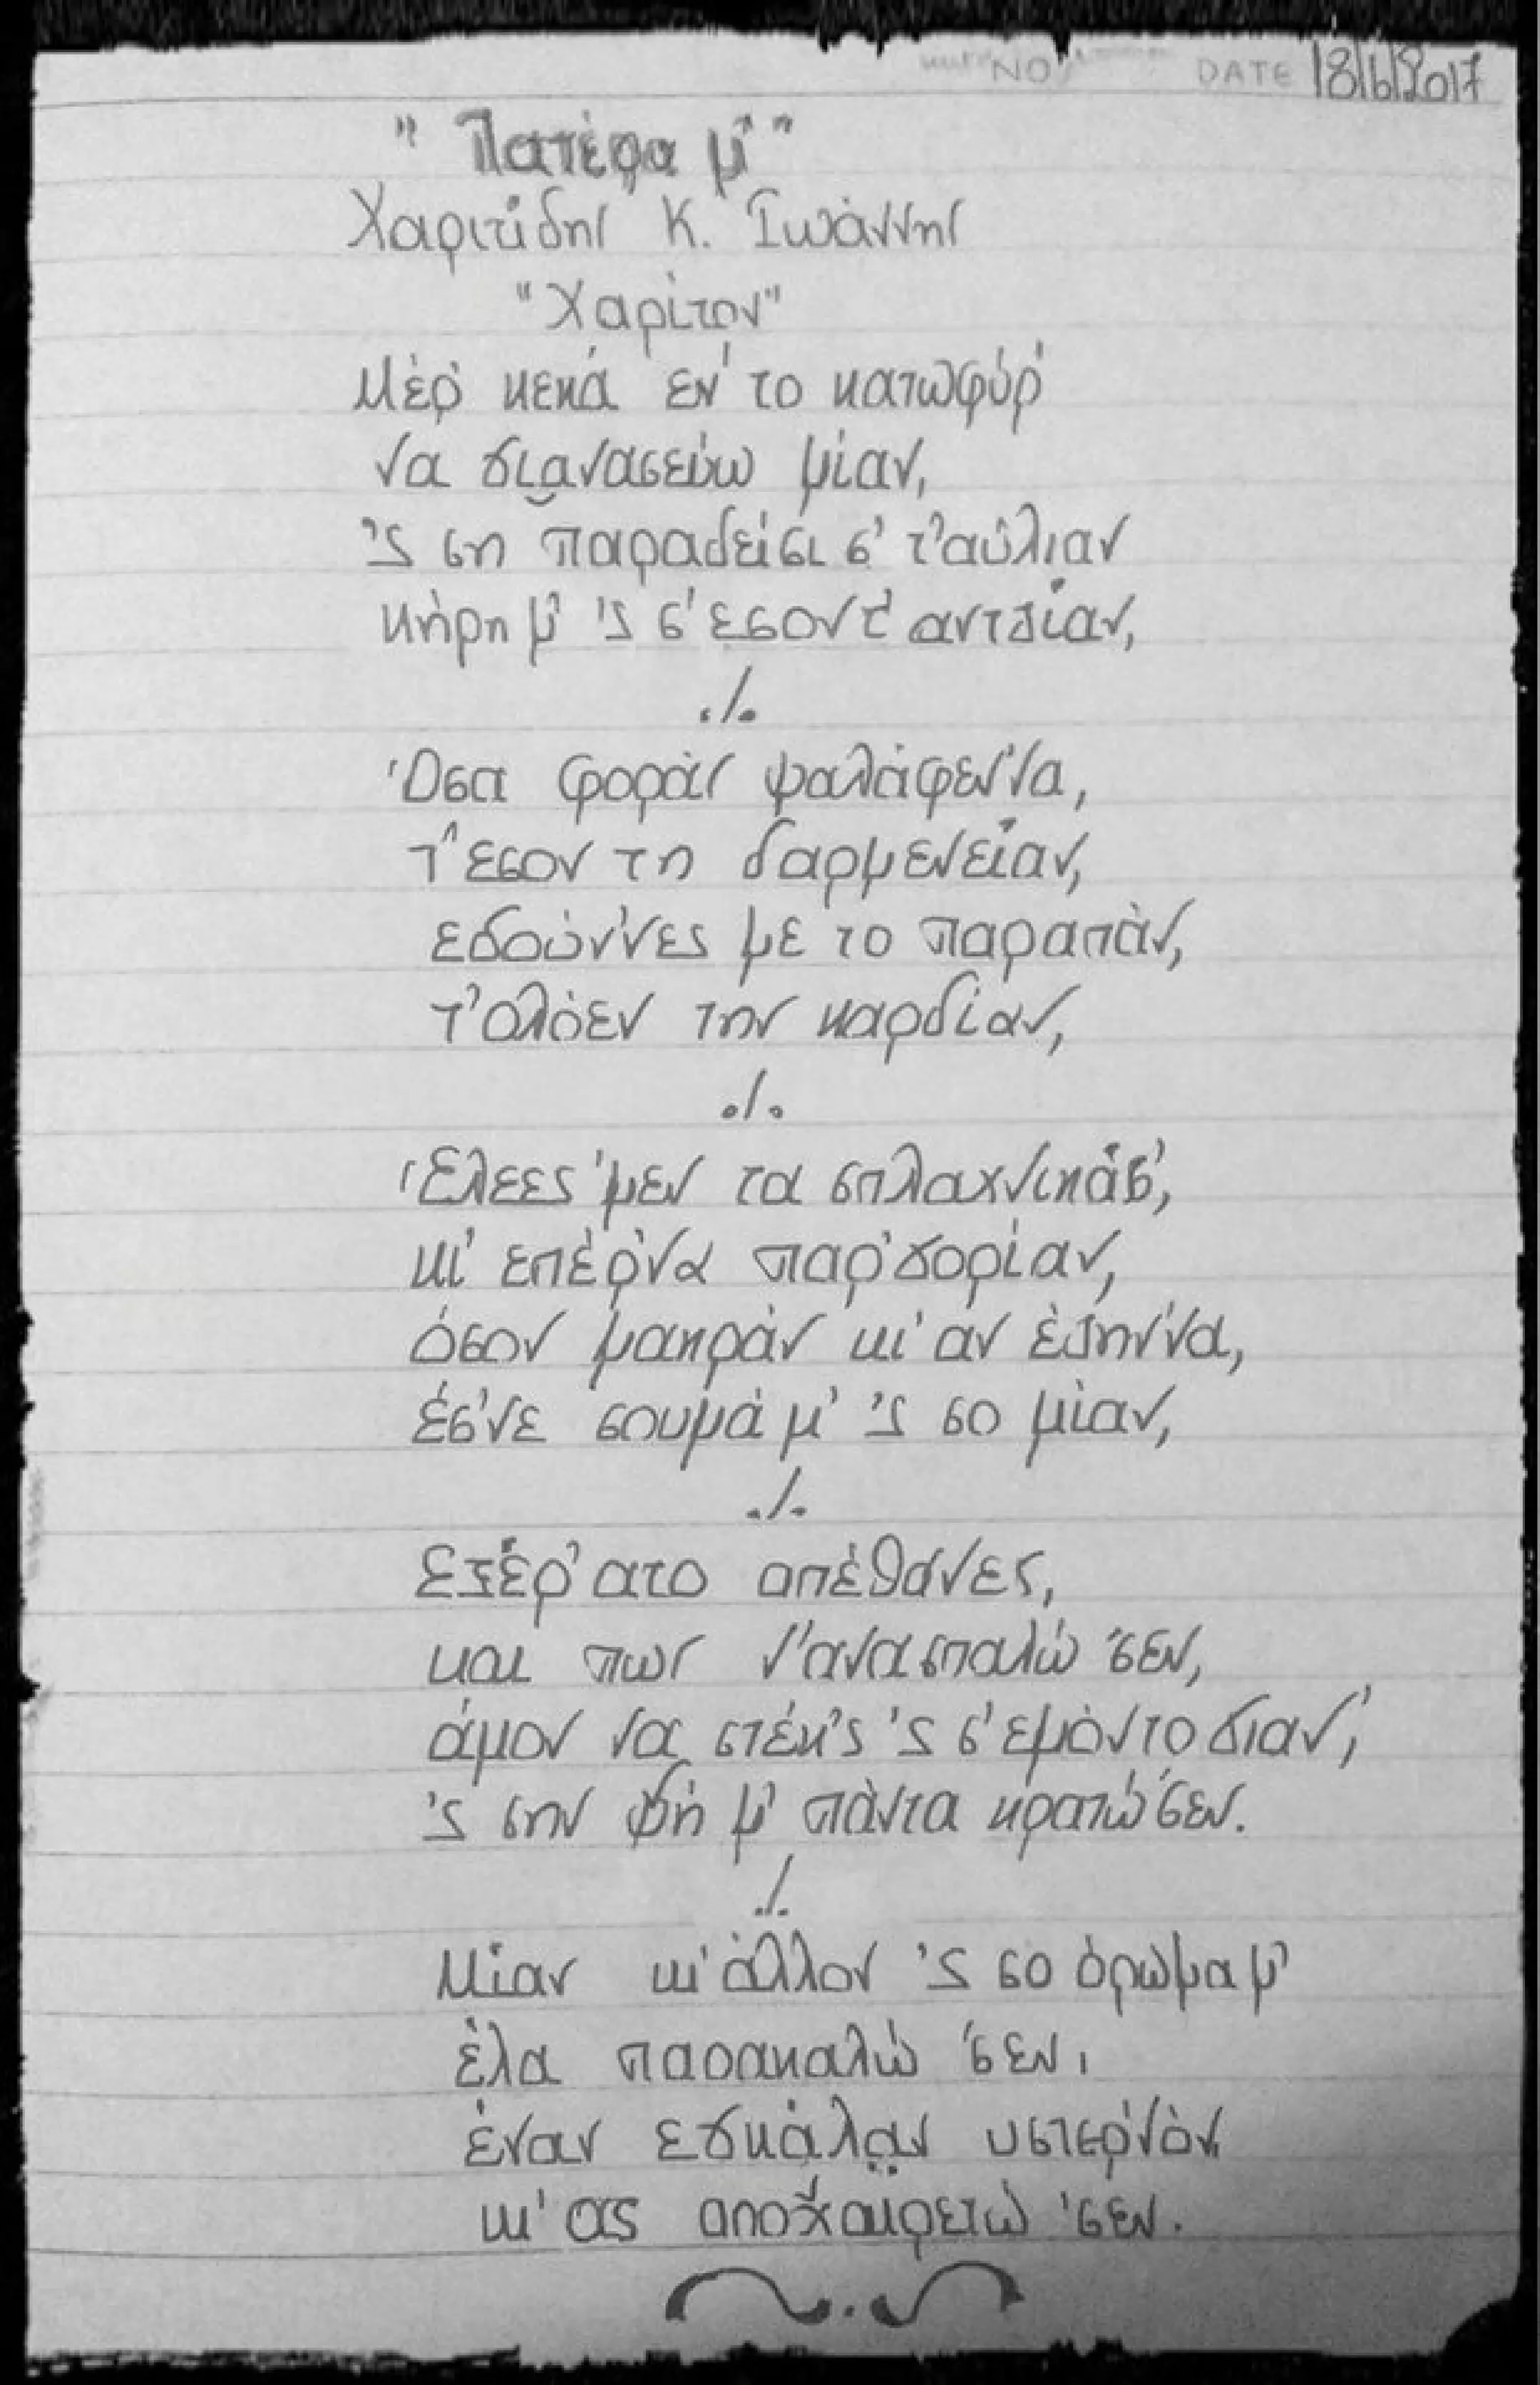 NO DATE 18/6/2017
" Πατέρα μ' "
Χαριτίδης Κ. Ιωάννης
"Χαρίτον"
Μέρ' κεκά εν' το κατωφύρ'
να σιανασεύω μίαν,
'ς ση παραδείσι σ' τ' αύλιαν
κύρη μ' 'ς σ' εσόντ' αντζίαν,
./.
Όσα φοράς ψαλάφεν'να,
τ' εσόν τη δαρμενείαν,
εδούν'νες με το παραπάν,
τ' ολόεν την καρδίαν,
./.
Έλεες 'μεν τα σπλαχνικά σ',
κι' επέρ'να παρ'γορίαν,
όσον μακράν κι' αν έζην'να,
έσ'νε σουμά μ' 'ς σο μίαν,
./.
Εξέρ' ατο απέθανες,
και πως ν' ανασπαλώ 'σεν,
άμον να στέκ'ς 'ς σ' εμόν το σιαν',
'ς σην ψή μ' πάντα κρατώ 'σεν.
./.
Μίαν κι' άλλον 'ς σο όρωμα μ'
έλα παρακαλώ 'σεν,
έναν εγκάλαν υστερ'νόν
κι' ας αποχαιρετώ 'σεν.